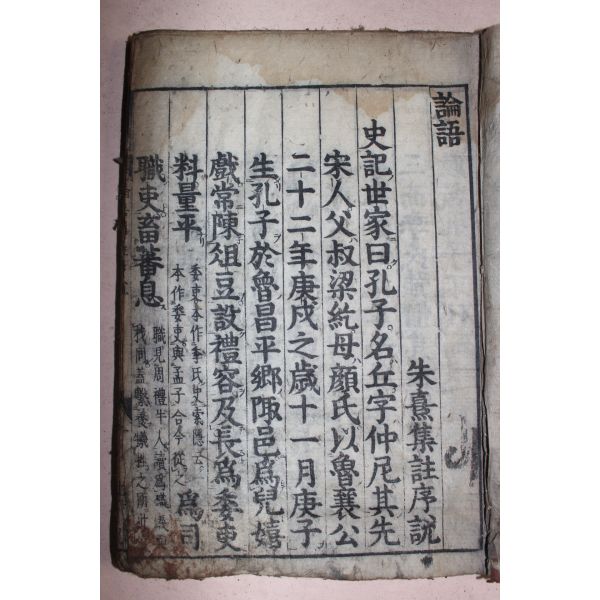 論語
朱熹集註序說
史記世家曰孔子名丘字仲尼其先
宋人父叔梁紇母顏氏以魯襄公
二十二年庚戌之歲十一月庚子
生孔子於魯昌平鄕陬邑爲兒嬉
戲常陳俎豆設禮容及長爲委吏
料量平 委吏本作季氏史索隱云 本作委吏與孟子合今從之 爲司
職吏畜蕃息 職見周禮牛人讀爲樴義與 杙同蓋繫養犧牲之所此